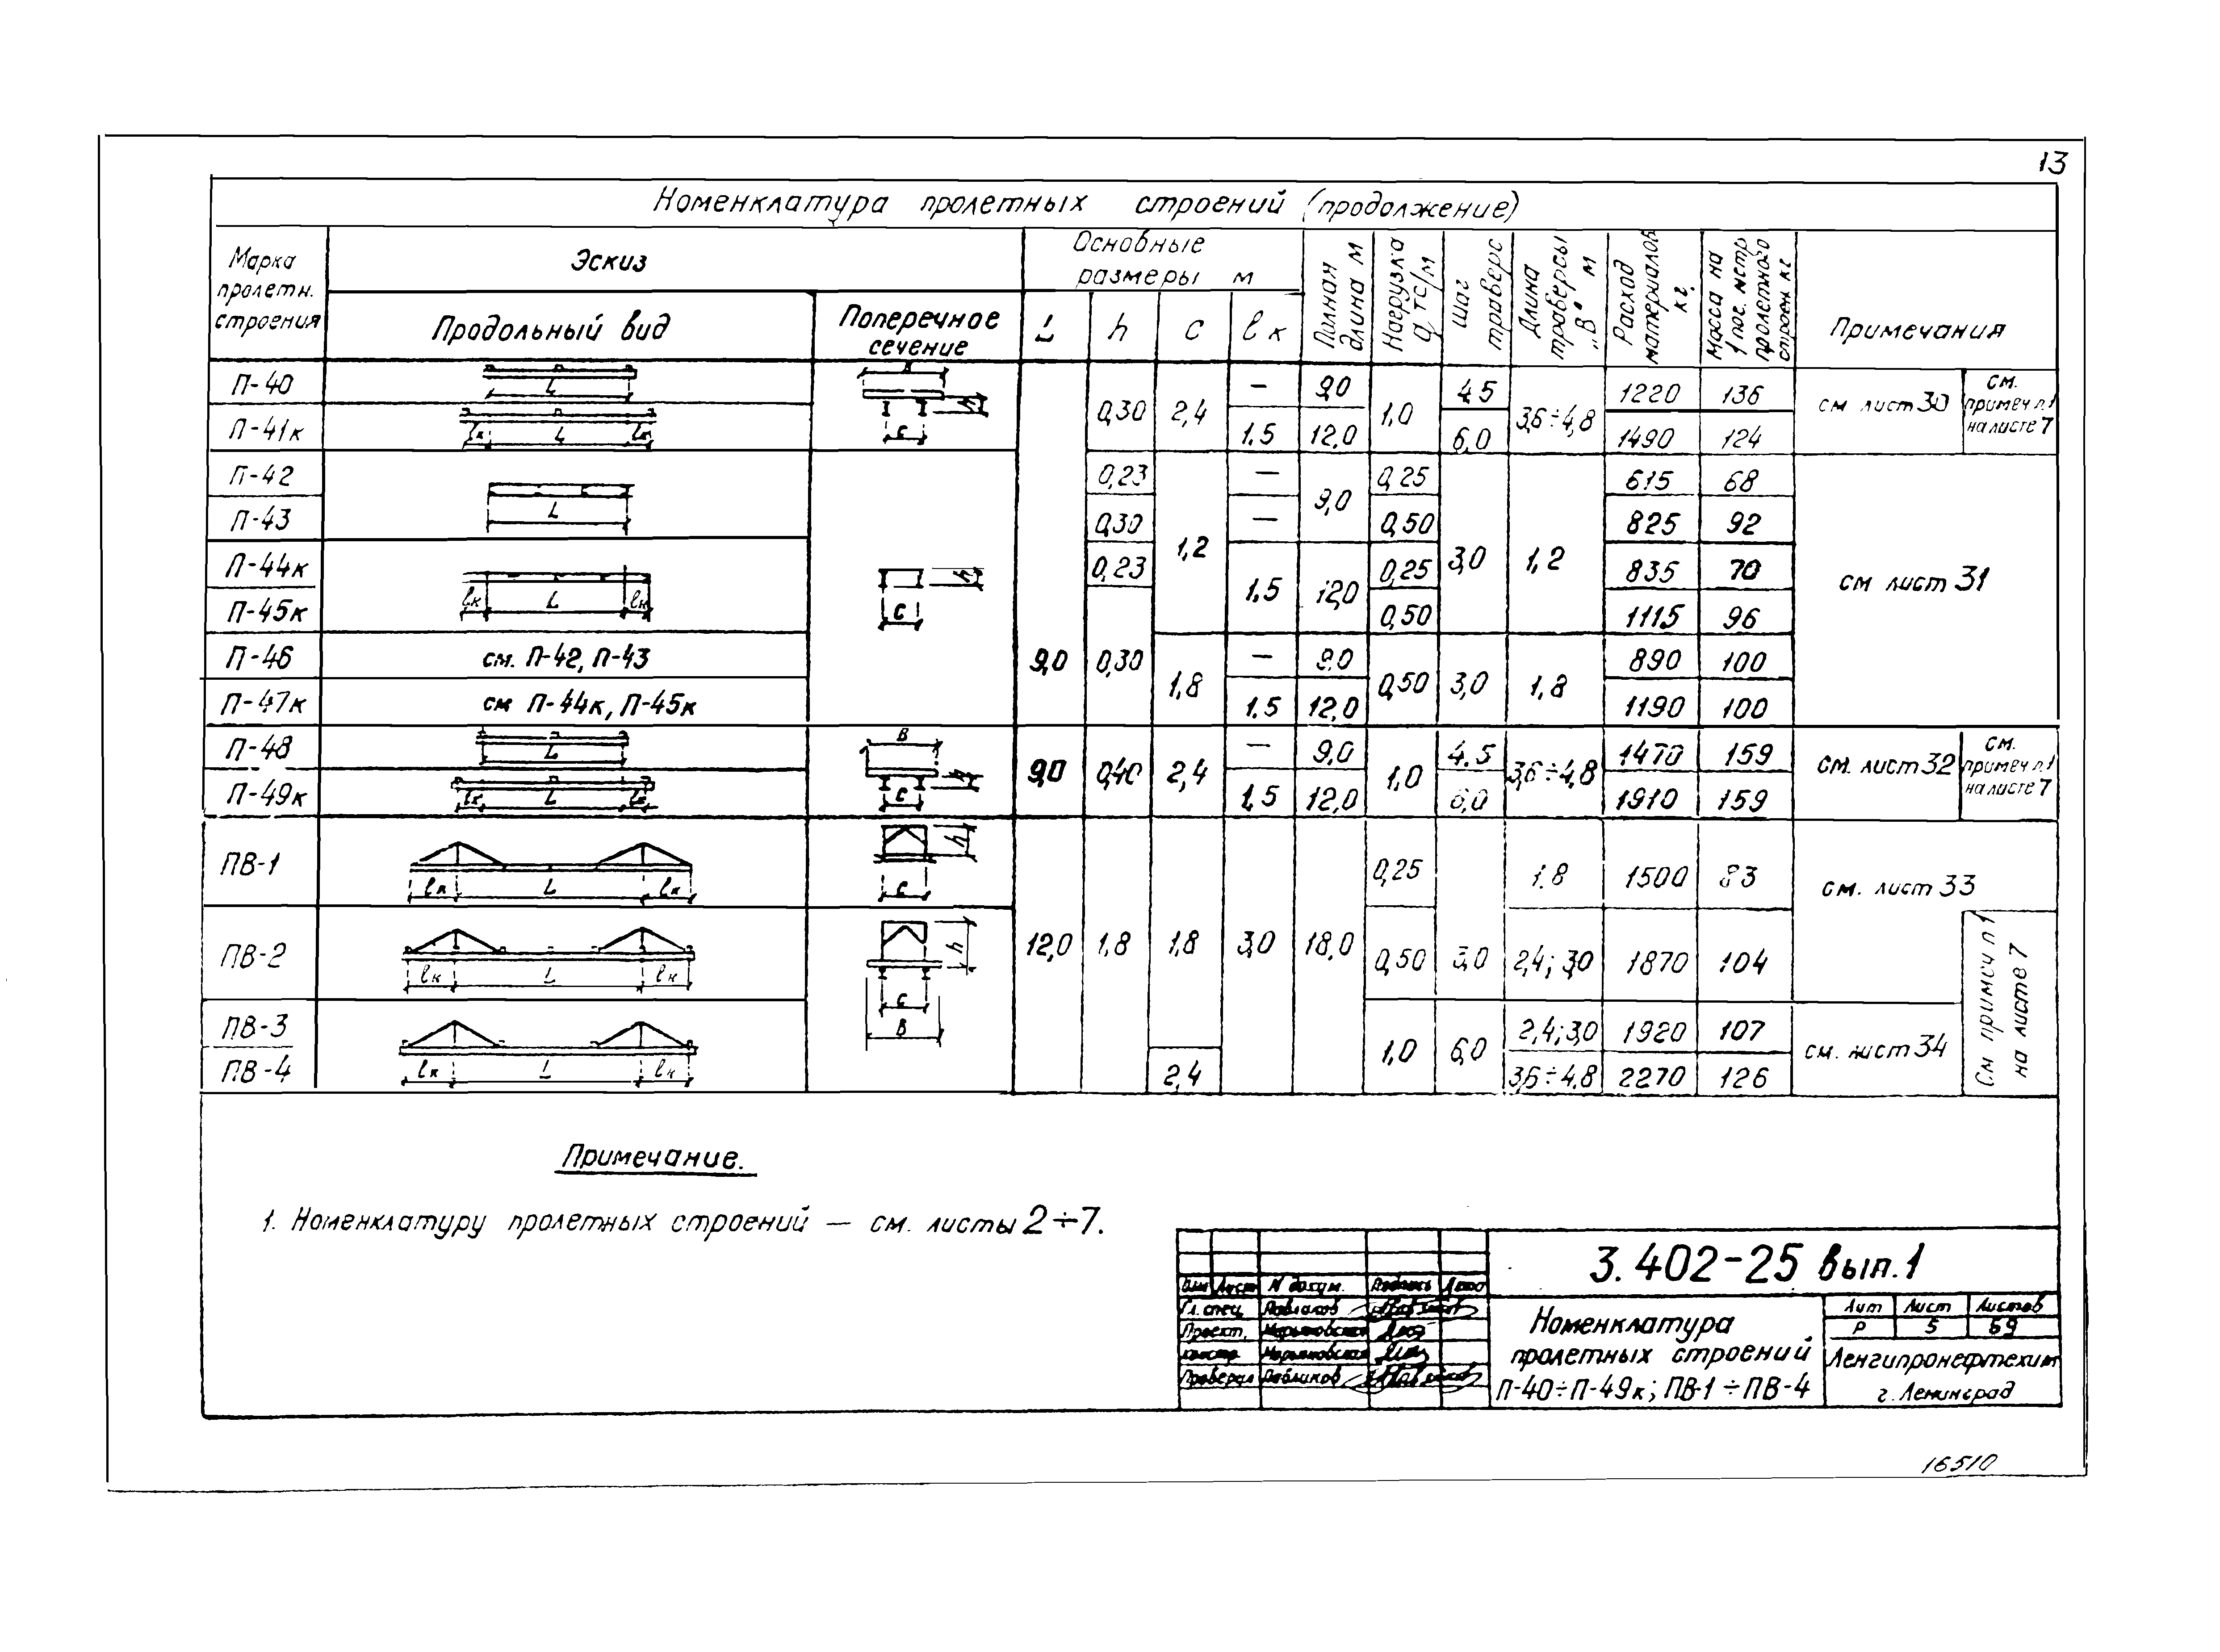 13
Номенклатура пролетных строений (продолжение)
Марка пролетн. строения
Эскиз
Продольный вид
Поперечное сечение
Основные размеры м
L h c lк
Полная длина м
Нагрузка q тс/м
Шаг траверс
Длина траверсы „В" м
Расход материалов кг
Масса на 1 пог. метр пролетного строен кг
Примечания
П-40 L — 9,0 4,5 1220 136
B h c 0,30 2,4 1,0 3,6÷4,8 см лист 30 см. примеч п.1 на листе 7
П-41к lк L lк 1,5 12,0 6,0 1490 124
П-42 0,23 — 0,25 615 68
L 9,0
П-43 0,30 — 0,50 825 92
1,2 3,0 1,2
П-44к 0,23 0,25 835 70
lк L lк h c 1,5 12,0 см лист 31
П-45к 0,50 1115 96
П-46 см. П-42, П-43 — 9,0 890 100
9,0 0,30 1,8 0,50 3,0 1,8
П-47к см П-44к, П-45к 1,5 12,0 1190 100
П-48 L — 9,0 4,5 1470 159
B h c 9,0 0,40 2,4 1,0 3,6÷4,8 см. лист 32 см. примеч п.1 на листе 7
П-49к lк L lк 1,5 12,0 6,0 1910 159
ПВ-1 lк L lк h c 0,25 1,8 1500 83
см. лист 33
ПВ-2 lк L lк h c B 12,0 1,8 1,8 3,0 18,0 0,50 3,0 2,4; 3,0 1870 104
См примеч п 1 на листе 7
ПВ-3 2,4; 3,0 1920 107
lк L lк 1,0 6,0 см. лист 34
ПВ-4 2,4 3,6÷4,8 2270 126
Примечание.
1. Номенклатуру пролетных строений — см. листы 2÷7.
3.402-25 вып.1
Изм Лист N докум. Подпись Дата
Гл. спец Павликов
Проект. Марьяновская
констр Марьяновская
Проверил Павликов
Номенклатура
пролетных строений
П-40÷П-49к; ПВ-1÷ПВ-4
Лит Лист Листов
Р 5 59
Ленгипронефтехим
г. Ленинград
16510